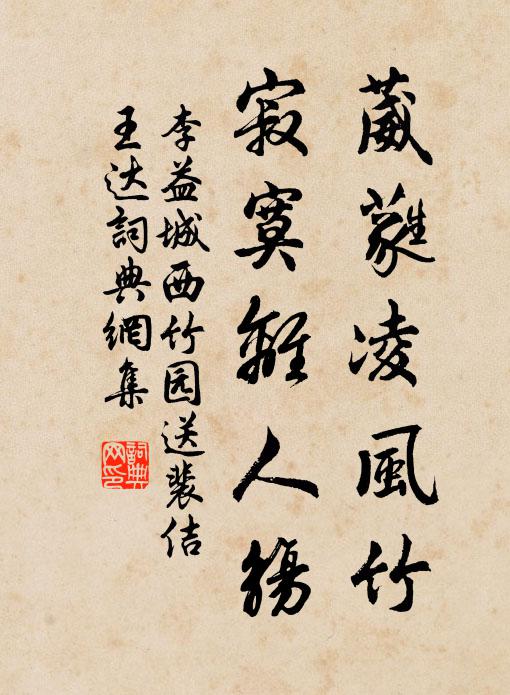 葳蕤凌風竹
寂寞離人觴
李益城西竹园送裴佶
王达詞典網集
詞典
网印